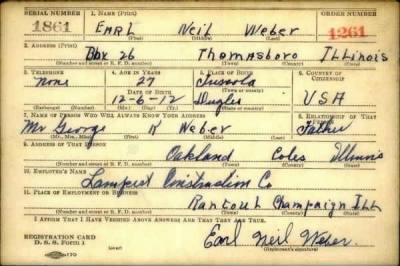 SERIAL NUMBER 1. NAME (Print) ORDER NUMBER
1861 EARL Neil Weber 1261
(First) (Middle) (Last)
2. ADDRESS (Print)
Box 26 Thomasboro ILLinois
(Number and street or R. F. D. number) (Town) (County) (State)
3. TELEPHONE 4. AGE IN YEARS 5. PLACE OF BIRTH 6. COUNTRY OF CITIZENSHIP
None 27
DATE OF BIRTH (Town or county)
12-6-12 USA
(Exchange) (Number) (Mo.) (Day) (Yr.) (State or country)
7. NAME OF PERSON WHO WILL ALWAYS KNOW YOUR ADDRESS 8. RELATIONSHIP OF THAT PERSON
Mr George Weber Father
(Mr., Mrs., Miss) (First) (Middle) (Last)
9. ADDRESS OF THAT PERSON
Oakland Coles Illinois
(Number and street or R. F. D. number) (Town) (County) (State)
10. EMPLOYER'S NAME
Co
11. PLACE OF EMPLOYMENT OR BUSINESS
Rantoul Champaign ILL
(Number and street or R. F. D. number) (Town) (County) (State)
I AFFIRM THAT I HAVE VERIFIED ABOVE ANSWERS AND THAT THEY ARE TRUE.
REGISTRATION CARD
D. S. S. Form 1 Earl Neil Weber
(Registrant's signature)